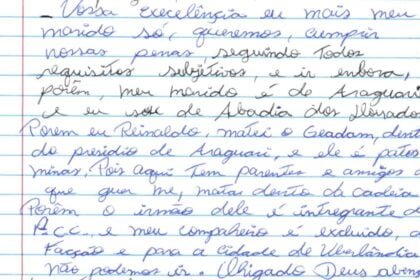 _ Vossa Execelência eu mais meu
marido só, queremos, cumprir
nossas penas seguindo Todos
requisitos subjetivos, e ir enbora,
porém, meu marido é de Araguari
e eu sou de Abadia dos Dourados
Porem eu Reinaldo, matei o Geadam, dent
do presidio de Araguari, e ele é patos
minas, Pois aqui Tem parentes e amigos d
que quer me, matar dento da cadeia
Porém o irmão dele é intregrante d
P.CC. e meu companheiro é excluido, d
Facção e para a cidade de Uberlândia
não podemos ir. Obigado Deus abo